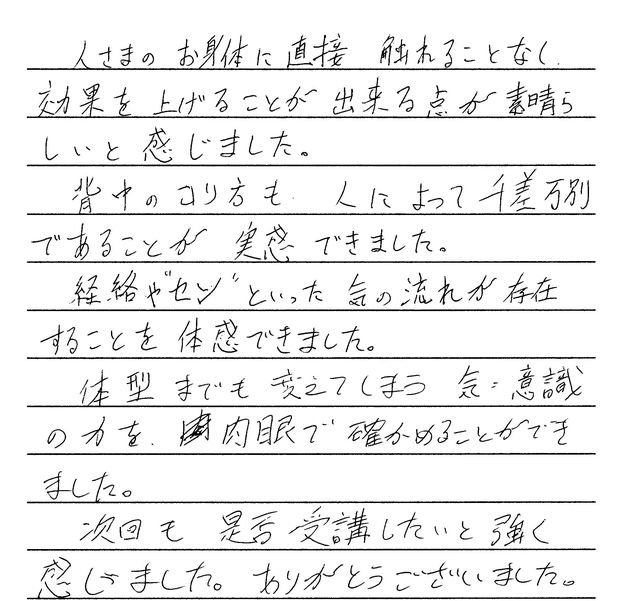 人さまの お身体に直接 触れることなく、
効果を上げることが出来る点が素晴ら
しいと感じました。
背中のコリ方も、人によって千差万別
であることが 実感できました。
経絡や"セン"といった気の流れが存在
することを体感できました。
体型までも変えてしまう 気=意識
の力を、肉眼で確かめることができ
ました。
次回も是否受講したいと強く
感じました。ありがとうございました。